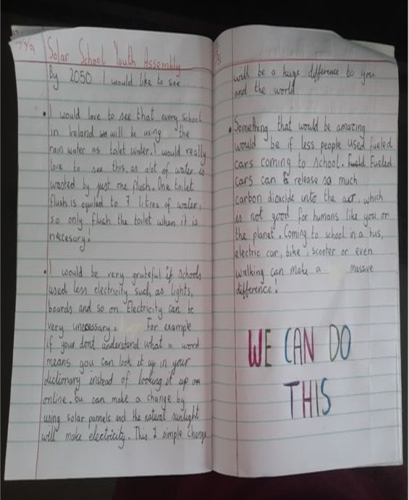 Solar School Youth Assembly
By 2050 I would like to see
I would love to see that every school
in Ireland will be using the
rain water as toilet water. I would really
love to see this, as alot of water is
wasted by just one flush. One toilet
flush is equiled to 7 litres of water,
so only flush the toilet when it is
necesary.
I would be very grateful if schools
used less electricity such as lights,
boards and so on. Electricity can be
very unnecessary. For example
if your dont understand what a word
means you can look it up in your
dictionary instead of looking it up on
online. can make a change by
using solar pannels and the natural sunlight
will make electricity. This simple change
will be a huge difference to you
and the world.
Something that would be amazing
would be if less people used fueled
cars coming to school. Fueled
cars can release so much
carbon dioxide into the air, which
is not good for humans like you or
the planet. Coming to school in a bus,
electric car, bike, scooter or even
walking can make a massive
difference!
WE CAN DO
THIS